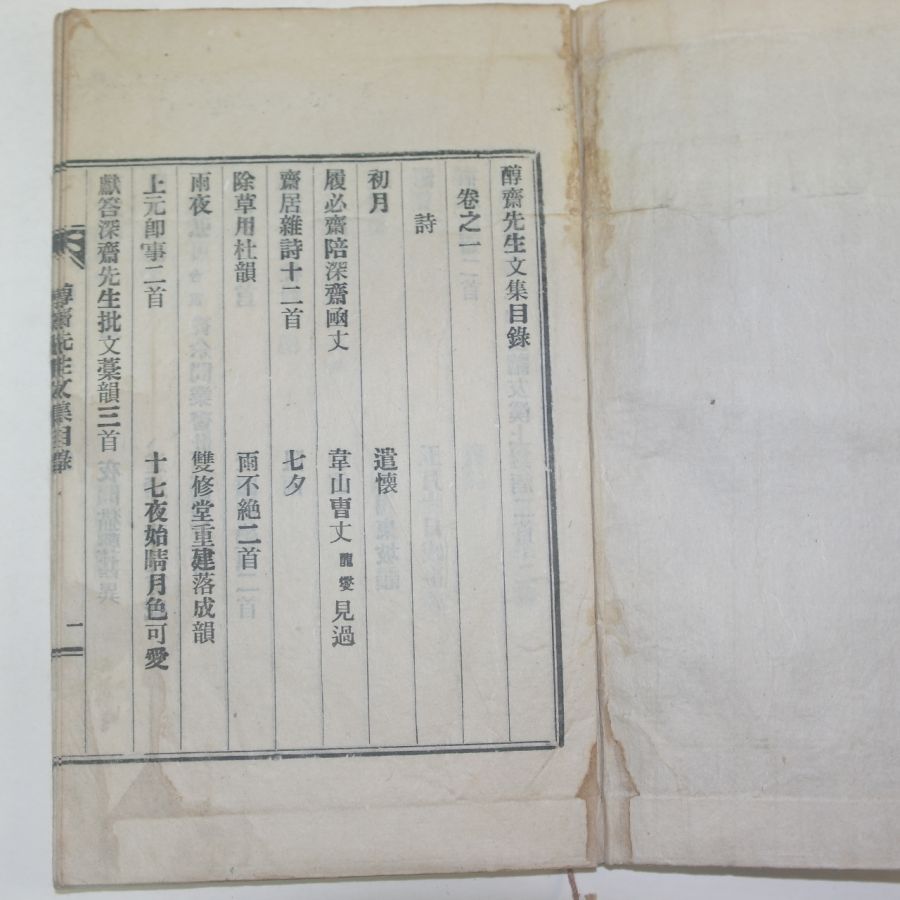 醇齋先生文集目錄
卷之一
詩
初月 遣懷
履必齋陪深齋凾丈 韋山曺丈 龍燮 見過
齋居雜詩十二首 七夕
除草用杜韻 雨不絶二首
雨夜 雙修堂重建落成韻
上元卽事二首 十七夜始晴月色可愛
獻答深齋先生批文藁韻三首
醇齋先生文集目錄 一